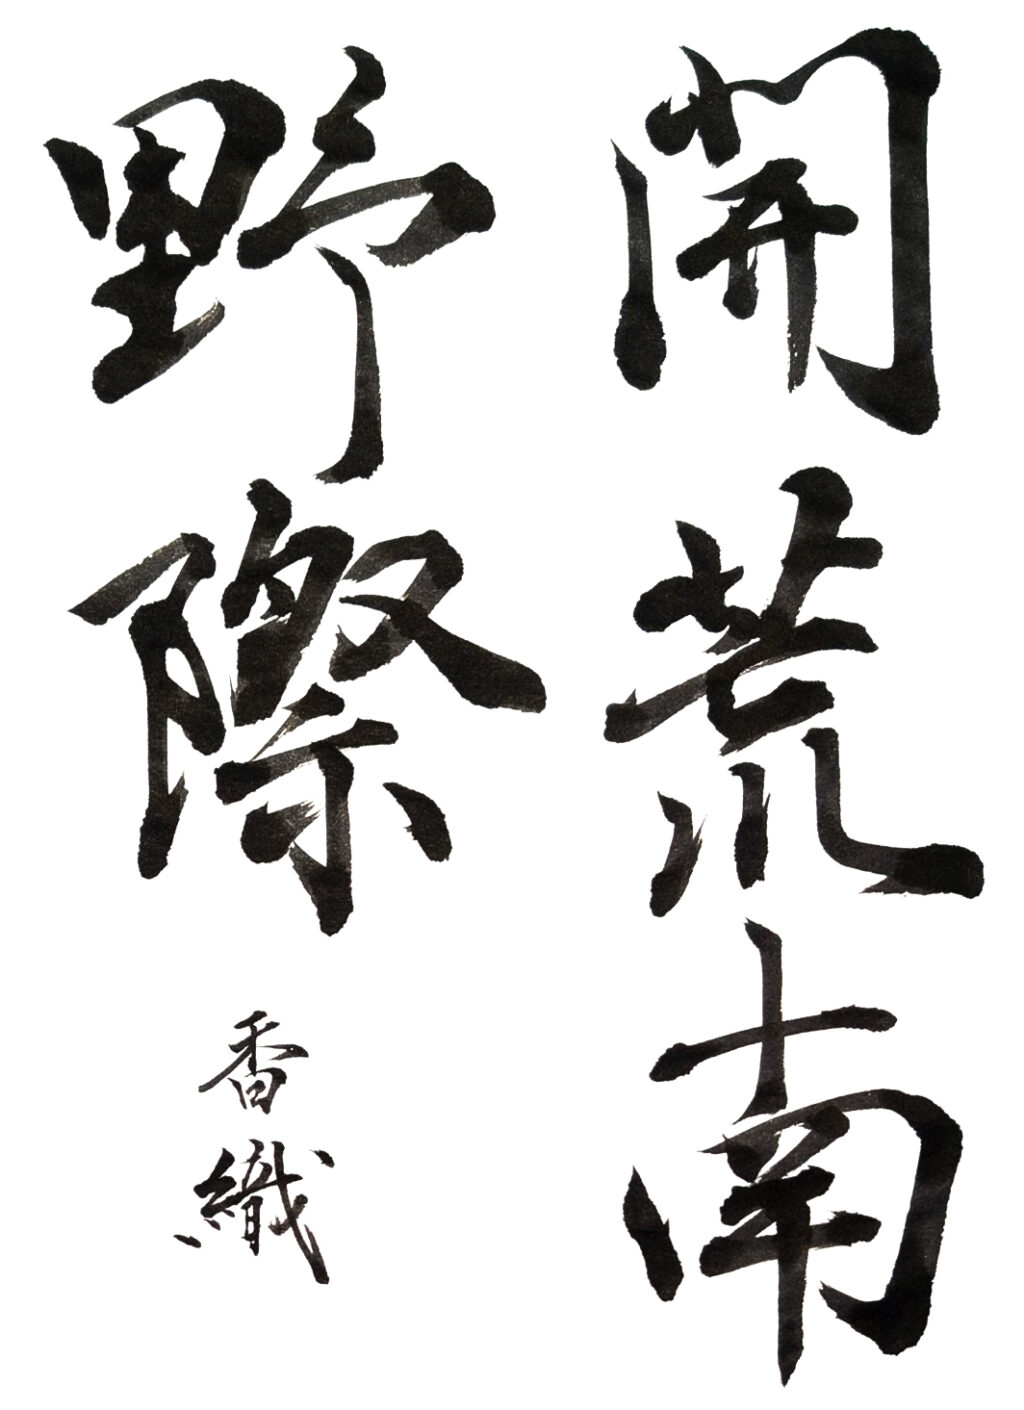 開荒南
野際
香織